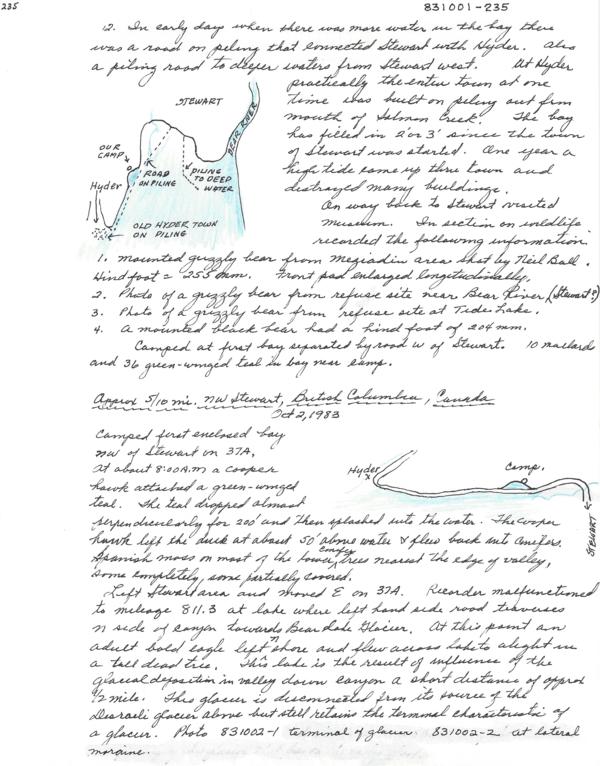 235
831001-235
12. In early days when there was more water in the bay there
was a road on piling that connected Stewart with Hyder. Also
a piling road to deeper waters from Stewart west. At Hyder
practically the entire town at one
time was built on piling out from
mouth of Salmon Creek. The bay
has filled in 2' or 3' since the town
of Stewart was started. One year a
high tide came up thru town and
destroyed many buildings.
On way back to Stewart visited
Museum. In section on wildlife
recorded the following information.
STEWART
BEAR RIVER
OUR CAMP
ROAD ON PILING
PILING TO DEEP WATER
Hyder
OLD HYDER TOWN ON PILING
1. mounted grizzly bear from Meziadin area shot by Neil Ball.
Hind foot = 255 mm. Front pad enlarged longitudinally.
2. Photo of a grizzly bear from refuse site near Bear River (Stewart?)
3. Photo of a grizzly bear from refuse site at Tide Lake.
4. A mounted black bear had a hind foot of 204 mm.
Camped at first bay separated by road W of Stewart. 10 mallards
and 36 green-winged teal in bay near camp.
Approx 5/10 mi. NW Stewart, British Columbia, Canada
Oct 2, 1983
Camped first enclosed bay
NW of Stewart on 37A,
At about 8:00 A.M a Cooper
hawk attacked a green-winged
teal. The teal dropped almost
perpendicularly for 200' and then splashed into the water. The Cooper
hawk left the duck at about 50' above water & flew back into conifers.
Spanish moss on most of the lower conifer trees nearest the edge of valley,
some completely, some partially covered.
Hyder
x
Camp.
STEWART
Left Stewart area and moved E on 37A. Recorder malfunctioned
to mileage 811.3 at lake where left hand side road traverses
N side of canyon towards Bear Lake Glacier. At this point an
adult bald eagle left N shore and flew across lake to alight in
a tall dead tree. This lake is the result of influence of the
glacial deposition in valley down canyon a short distance of approx
1/2 mile. This glacier is disconnected from its source of the
glacier above but still retains the terminal characteristic of
a glacier. Photo 831002-1 terminal of glacier 831002-2 at lateral
moraine.